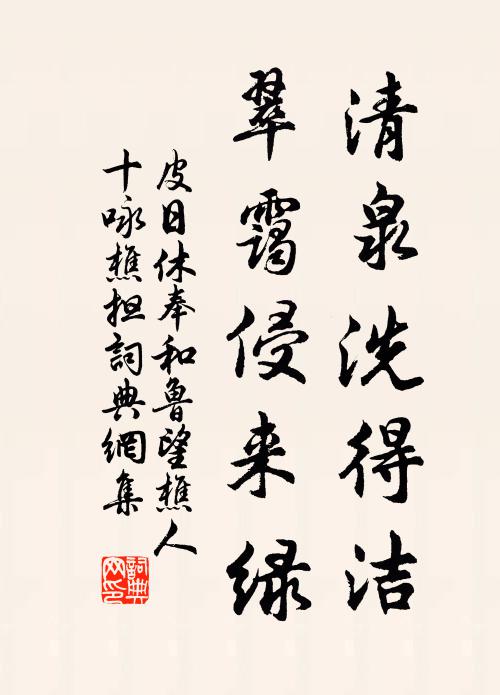 清泉洗得洁
翠霭侵来绿
皮日休奉和鲁望樵人
十咏樵担词典網集
詞典
网印